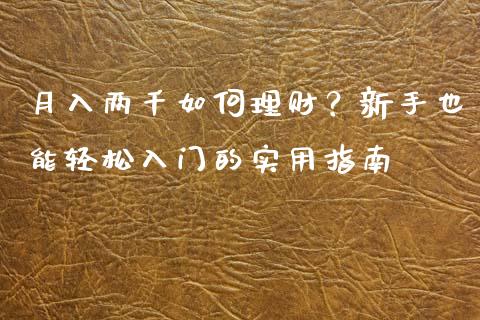 月入两千如何理财？新手也
能轻松入门的实用指南